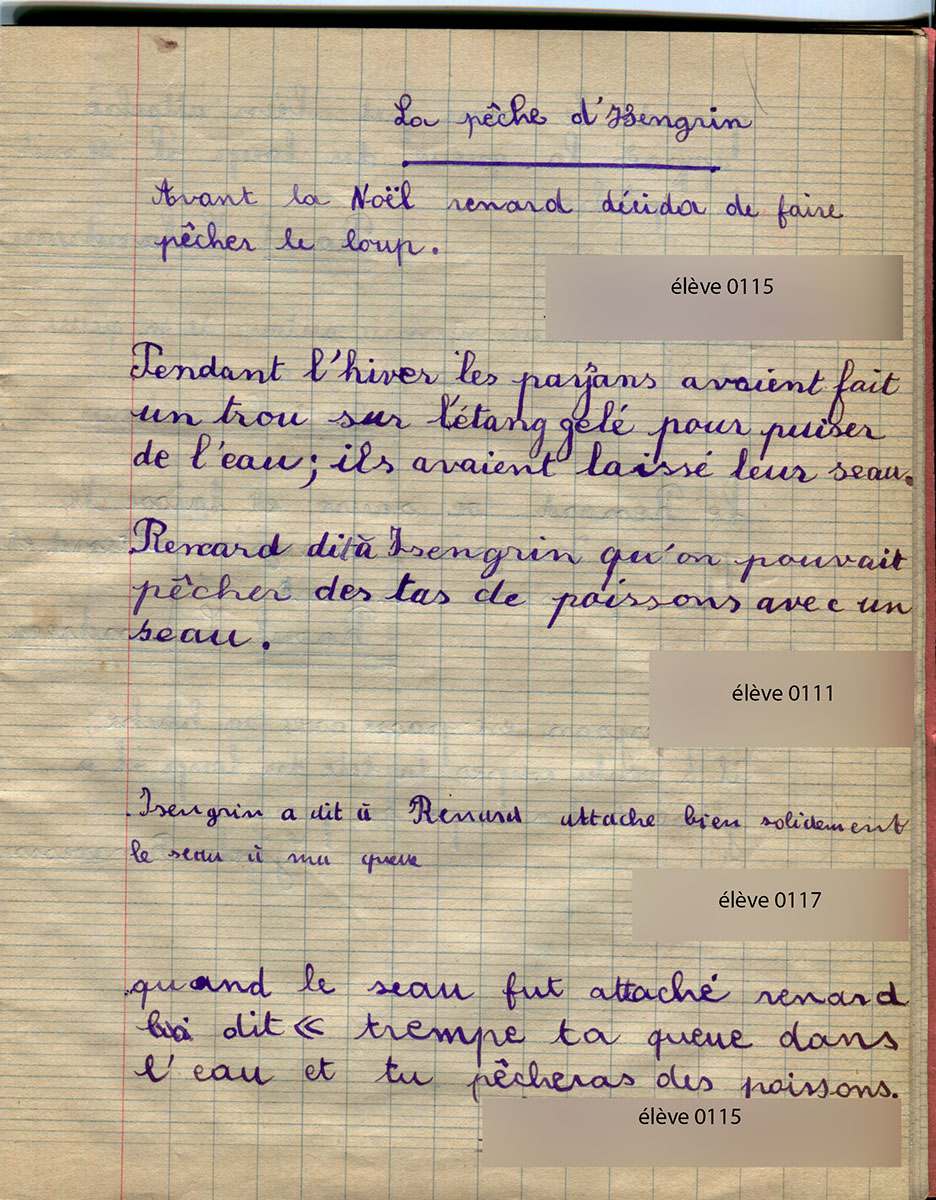 La pêche d'Isengrin
Avant la Noël renard décida de faire
pêcher le loup.
élève 0115
Pendant l'hiver les paysans avaient fait
un trou sur l'étang gelé pour puiser
de l'eau; ils avaient laissé leur seau.
Renard dit à Isengrin qu'on pouvait
pêcher des tas de poissons avec un
seau.
élève 0111
Isengrin a dit à Renard attache bien solidement
le seau à ma queue
élève 0117
quand le seau fut attaché renard
lui dit « trempe ta queue dans
l'eau et tu pêcheras des poissons.
élève 0115